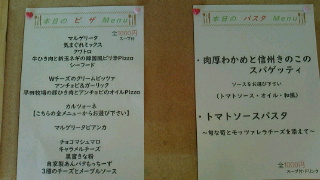 本日の ピザ Menu
全1000円
スープ付
マルゲリータ
気まぐれミックス
クワトロ
辛ひき肉と新玉ネギの韓国風ピリ辛Pizza
シーフード
Wチーズのクリームピッツァ
アンチョビ&ガーリック
平田牧場の豚ひき肉とアンチョビのオイルPizza
カルツォーネ
【こちらの全メニューからお選び下さい】
マルゲリータビアンカ
チョコマシュマロ
キャラメルチーズ
黒蜜きな粉
自家製あんバナもっちーず
3種のチーズとメープルソース
本日の パスタ Menu
・肉厚わかめと信州きのこの
スパゲッティ
ソースをお選び下さい
(トマトソース・オイル・和風)
・トマトソースパスタ
~旬な筍とモッツァレラチーズを添えて~
全1000円
スープ付・ドリンク